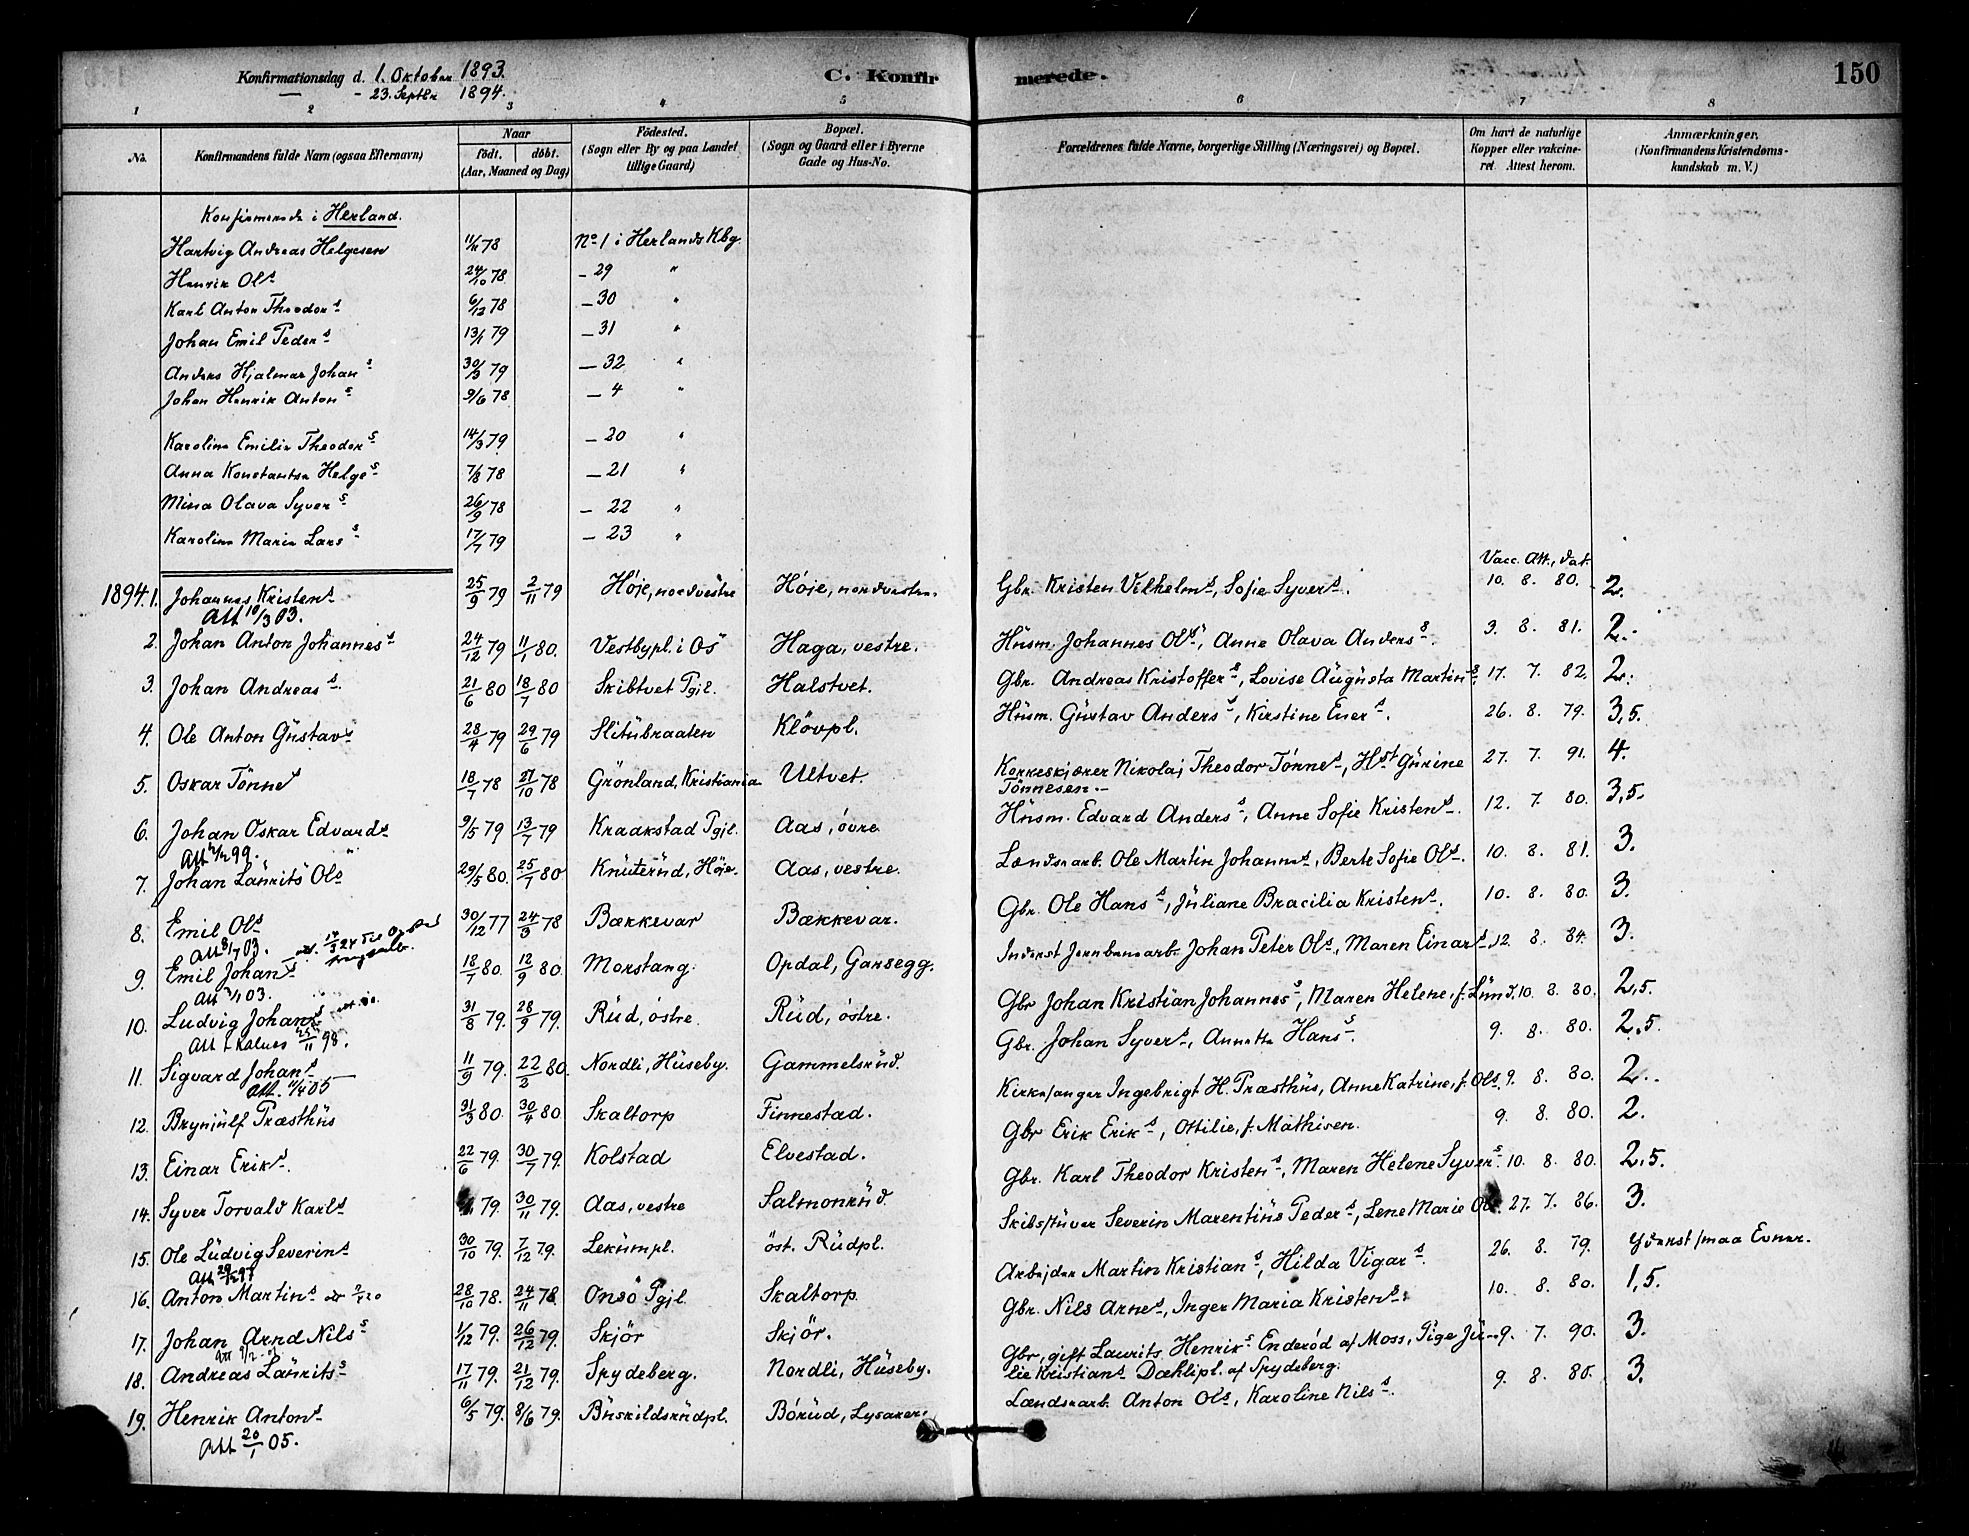 Konfirmationsdag d. 1. Oktober 1893. C. Konfirmerede. 150
— - 23. Septbr 1894.
1 2 3 4 5 6 7 8
No. Konfirmandens fulde Navn (ogsaa Efternavn) Naar født. døbt. (Aar, Maaned og Dag) Födested. (Sogn eller By og paa Landet tillige Gaard) Bopæl. (Sogn og Gaard eller i Byerne Gade og Hus-No. Forældrenes fulde Navne, borgerlige Stilling (Næringsvei) og Bopæl. Om havt de naturlige Kopper eller vakcineret. Attest herom. Anmærkninger. (Konfirmandens Kristendomskundskab m. V.)
Konfirmerede i Herland.
Hartvig Andreas Helgesen 11/11 78 No 1 i Herlands Kbg.
Henrik Ols 24/10 78 — 29 "
Karl Anton Theodors 6/12 78 — 30 "
Johan Emil Peders 13/1 79 — 31 "
Anders Hjalmar Johans 30/3 79 — 32 "
Johan Henrik Antons 9/6 78 — 4 "
Karoline Emilie Theodors 14/3 79 — 20 "
Anna Konstantse Helges 7/8 78 — 21 "
Mina Olava Syvers 26/9 78 — 22 "
Karoline Marie Lars 17/7 79 — 23 "
Vacc. Att., dat.
1894. 1. Johannes Kristens 25/9 79 2/11 79 Höje, nordvestre Höje, nordvestre. Gbr. Kristen Vilhelms, Sofie Syvers. 10. 8. 80. 2.
Att 10/3 03.
2. Johan Anton Johannes 24/12 79 11/1 80. Vestbypl. i Ös Haga, vestre. Husm. Johannes Ols, Anne Olava Anders 3. 8. 81. 2.
3. Johan Andreas 21/6 80 18/7 80 Skibtvet Pgjl. Halstvet. Gbr. Andreas Kristoffers, Lovise Augusta Martins 17. 7. 82. 2.
4. Ole Anton Gustavs 28/4 79 29/6 79 Slitubraaten Klövpl. Husm. Gustav Anders, Kirstine Eners. 26. 8. 79. 3,5.
5. Oskar Tönnes 18/7 78 27/10 78 Grönland, Kristiania Ultvet. Korkeskjærer Nikolaj Theodor Tönnes, Hst Gurine 27. 7. 91. 4.
Tönnesen.
6. Johan Oskar Edvards 9/5 79 13/7 79 Kraakstad Pgjl. Aas, övre Husm. Edvard Anders, Anne Sofie Kristens. 12. 7. 80. 3,5.
7. Johan Laurits Ols 29/5 80. 25/7 80 Knuterud, Höje. Aas, vestre. Lændsearb. Ole Martin Johannes, Berte Sofie Ols. 10. 8. 81. 3.
8. Emil Ols 30/12 77 24/3 78 Bækkevar Bækkevar. Gbr. Ole Hans, Juliane Bracilia Kristens. 10. 8. 80. 3.
9. Emil Johans 18/7 80. 12/9 80 Morstang. Opdal, Garsegg. Inderst Jernbanearb. Johan Peter Ols, Maren Einars 12. 8. 84. 3.
10. Ludvig Johans 31/8 79. 28/9 79. Rud, östre. Rud, östre. Gbr Johan Kristian Johannes, Maren Helene, f. Lund. 10. 8. 80. 2,5.
Att t Kalnes 25/11 98.
11. Sigvard Johans 11/9 79. 22/2 80. Nordli, Huseby. Gammelsrud. Gbr. Johan Syvers, Annette Hans. 9. 8. 80. 2,5.
Att. 11/4 05
12. Brynjulf Præsthus 31/3 80 30/4 80 Skaltorp Finnestad. Kirkesanger Ingebrigt H. Præsthus, Anne Katrine, f. Ols 9. 8. 80. 2.
13. Einar Eriks. 22/6 79. 30/7 79. Kolstad Elvestad. Gbr Erik Eriks, Ottilie, f. Mathisen. 9. 8. 80. 2.
14. Syver Torvald Karls 79. 30/11 79. Aas, vestre Salmonrud Gbr. Karl Theodor Kristens, Maren Helene Syvers 10. 8. 80. 2,5.
15. Ole Ludvig Severins 30/10 79. 7/12 79. Lekumpl. öst. Rudpl. Skibsstuver Severin Marentius Peders, Lene Marie Ols 27. 7. 86. 3.
16. Anton Martins 28/10 78. 24/11 78 Onsö Pgjl. Skaltorp Arbejder Martin Kristians, Hilda Vigars. 26. 8. 79. yderst smaa Evner.
17. Johan Arnd Nils 1/12 79. 26/12 79. Skjör Skjör. Gbr. Nils Arnes, Inger Maria Kristens. 10. 8. 80. 1,5.
18. Andreas Laurits 17/11 79. 21/12 79. Spydeberg. Nordli, Huseby. Gbr, gift Laurits Henriks Enderöd af Moss, Pige Ju- 9. 7. 90. 3.
lie Kristians Dæhlipl. af Spydeberg.
19. Henrik Antons 6/5 79. 8/6 79. Buskildsrudpl. Börud, Lysaker. Lændsearb. Anton Ols, Karoline Nils. 9. 8. 80. 3.
Att 20/1 05.